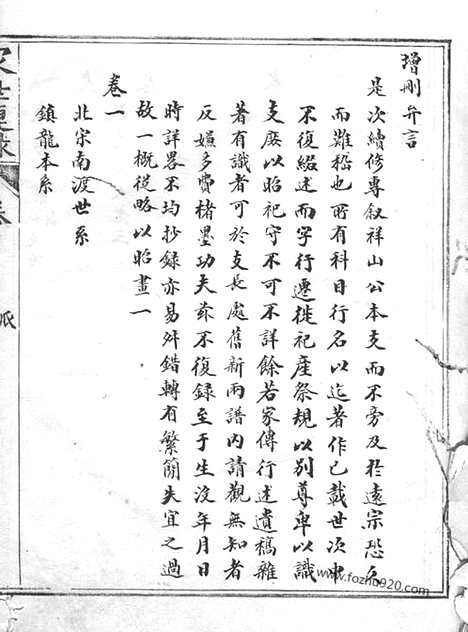 增刪弁言
是次續修專叙祥山公本支而不旁及於遠宗恐久
而難稽也所有科目行名以迄著作已載世次中
不復綴述而字行遷徙祀産祭規以别尊卑以識
支庶以昭祀守不可不詳餘若家傳行述遺稿雜
著有識者可於支長處舊新兩譜內請觀無知者
反嫌多費楮墨功夫茲不復録至于生沒年月日
時詳畧不均抄録亦易舛錯轉有繁簡失宜之過
故一概從略以昭畫一
卷一
北宋南渡世系
鎮龍本系
派
www.fozhu920.com